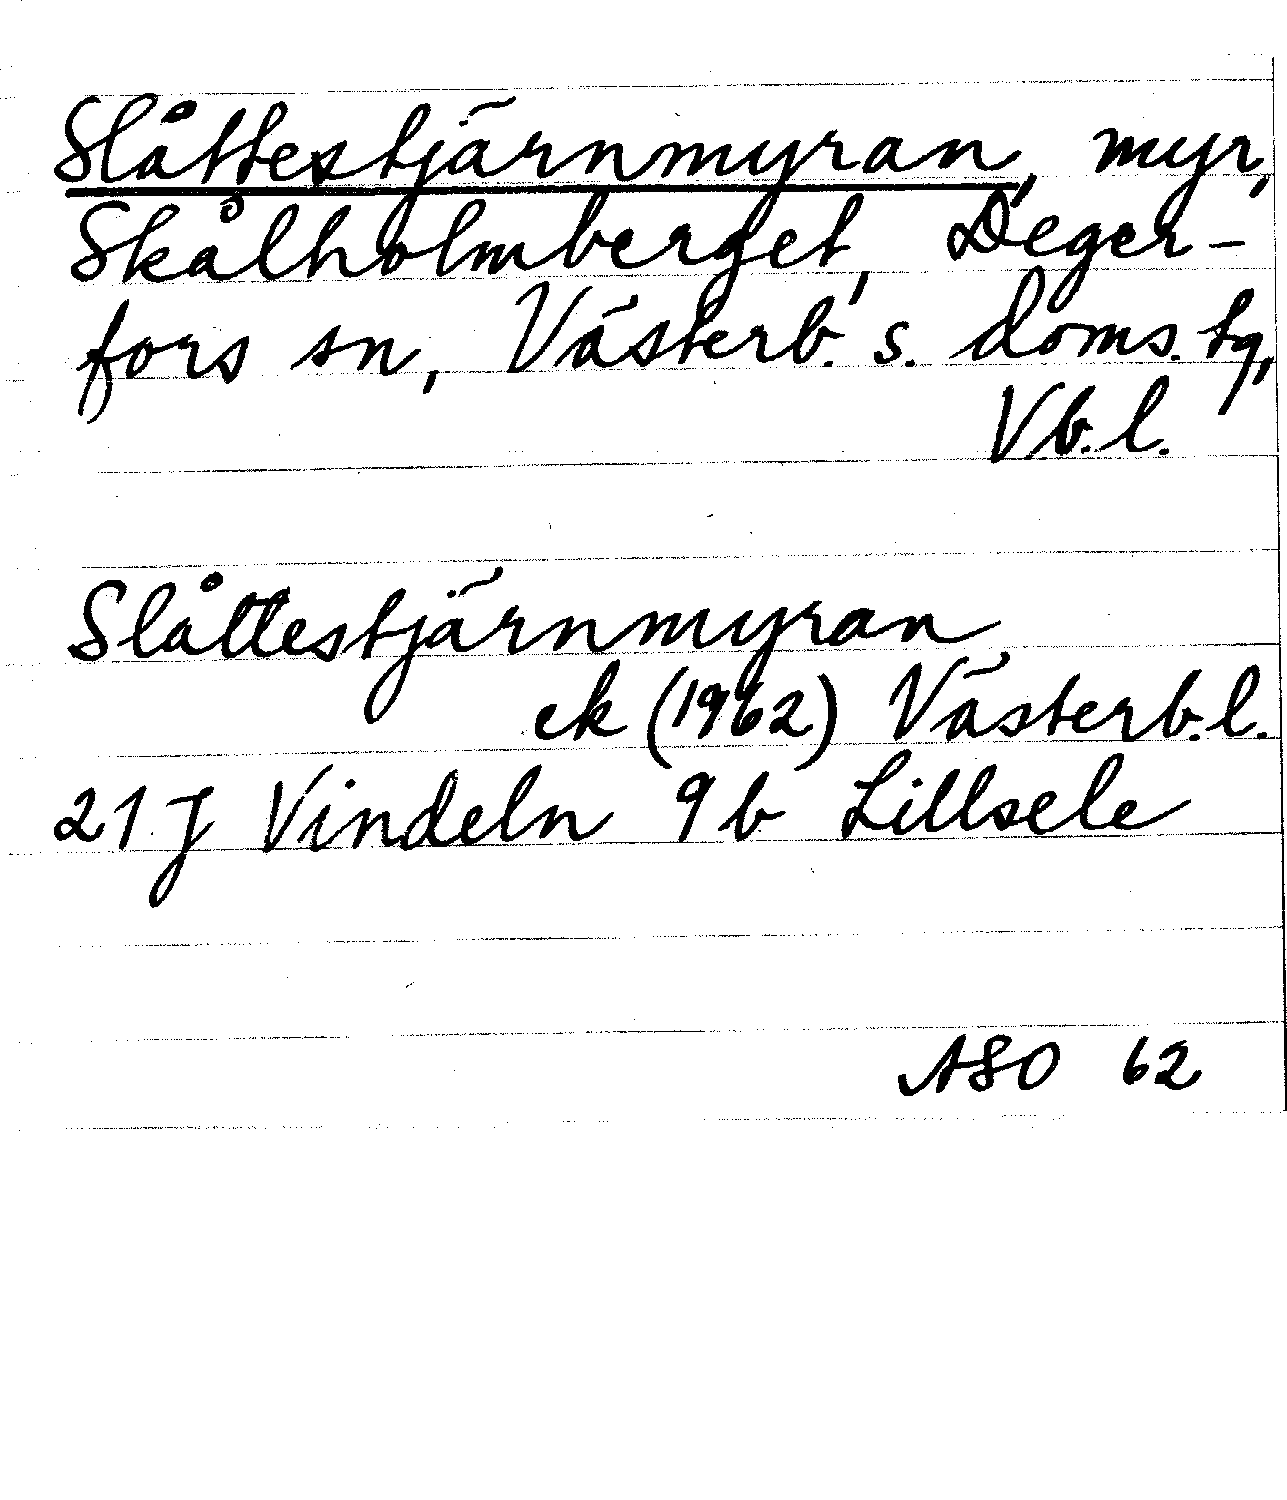 Slåttestjärnmyran, myr,
Skålholmberget, Deger-
fors sn, Västerb. s. doms. tg,
Vb. l.
Slåttestjärnmyran
ek (1962) Västerb. l.
21 J Vindeln 9b Lillsele
ASO 62